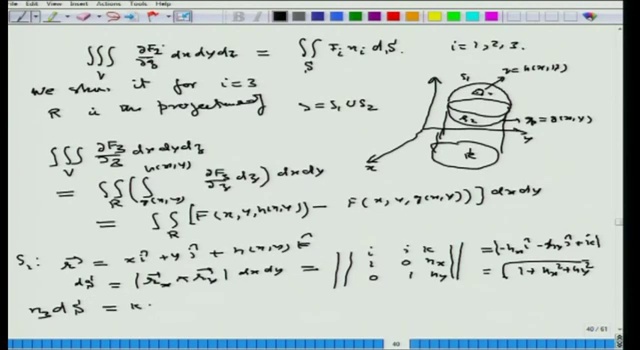 File Edit View Insert Actions Tools Help
∭_V ∂F_i/∂z dx dy dz = ∬_S F_i n_i dS. i = 1, 2, 3.
We show it for i = 3
R is the projection of S = S_1 ∪ S_2
S_1 z = h(x,y)
S_2 z = g(x,y)
R
x y
∭_V ∂F_3/∂z dx dy dz
= ∬_R ( ∫_{g(x,y)}^{h(x,y)} ∂F_3/∂z dz ) dx dy
= ∬_R [ F(x, y, h(x,y)) - F(x, y, g(x,y)) ] dx dy
S_1: r = x i + y j + h(x,y) k
dS = | r_x × r_y | dx dy = || i j k 1 0 h_x 0 1 h_y || = |-h_x i - h_y j + k| = √(1 + h_x^2 + h_y^2)
n_3 dS = k.
40 / 61
40